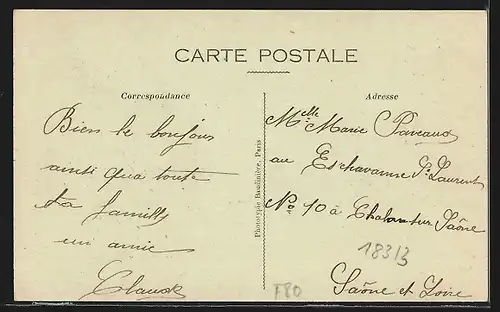 CARTE POSTALE
Correspondance
Adresse
Bien le bonjour
ainsi qua toute
ta famille
un amie
Claude
Phototypie Baudinière, Paris
Mlle Marie Paveaud
au Eschavanne St Laurent
No 10 à Chalon sur Saône
Saône et Loire
18313
F80